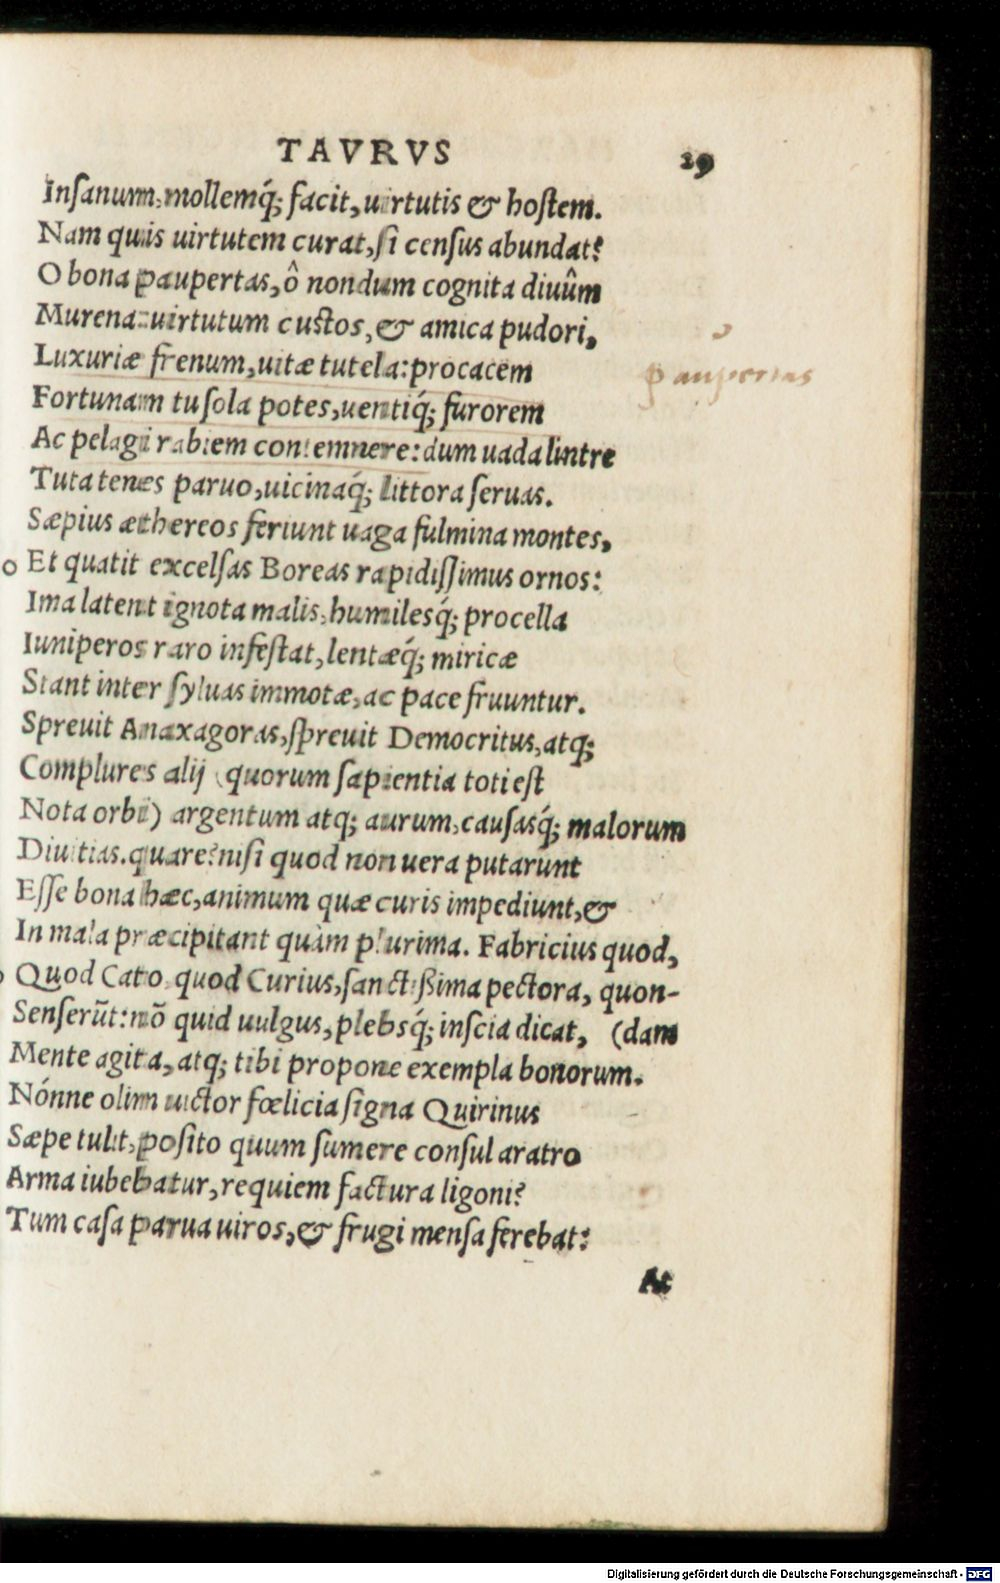 TAVRVS 29
Insanum, mollemq́; facit, uirtutis & hostem.
Nam quis uirtutem curat, si census abundat?
O bona paupertas, ô nondum cognita diuûm
Munera: uirtutum custos, & amica pudori,
Luxuriæ frenum, uitæ tutela: procacem
paupertas
Fortunam tu sola potes, uentiq́; furorem
Ac pelagi rabiem contemnere: dum uada lintre
Tuta tenes paruo, uicinaq́; littora seruas.
Sæpius æthereos feriunt uaga fulmina montes,
Et quatit excelsas Boreas rapidissimus ornos:
Ima latent ignota malis, humilesq́; procella
Iuniperos raro infestat, lentæq́; miricæ
Stant inter syluas immotæ, ac pace fruuntur.
Spreuit Anaxagoras, spreuit Democritus, atq;
Complures alij (quorum sapientia toti est
Nota orbi) argentum atq; aurum, causasq́; malorum
Diuitias. quare? nisi quod non uera putarunt
Esse bona hæc, animum quæ curis impediunt, &
In mala præcipitant quàm plurima. Fabricius quod,
Quod Cato, quod Curius, sanctißima pectora, quon-
Senserūt: nō quid uulgus, plebsq́; inscia dicat, (dam
Mente agita, atq; tibi propone exempla bonorum.
Nónne olim uictor fœlicia signa Quirinus
Sæpe tulit, posito quum sumere consul aratro
Arma iubebatur, requiem factura ligoni?
Tum casa parua uiros, & frugi mensa ferebat:
At
Digitalisierung gefördert durch die Deutsche Forschungsgemeinschaft - DFG